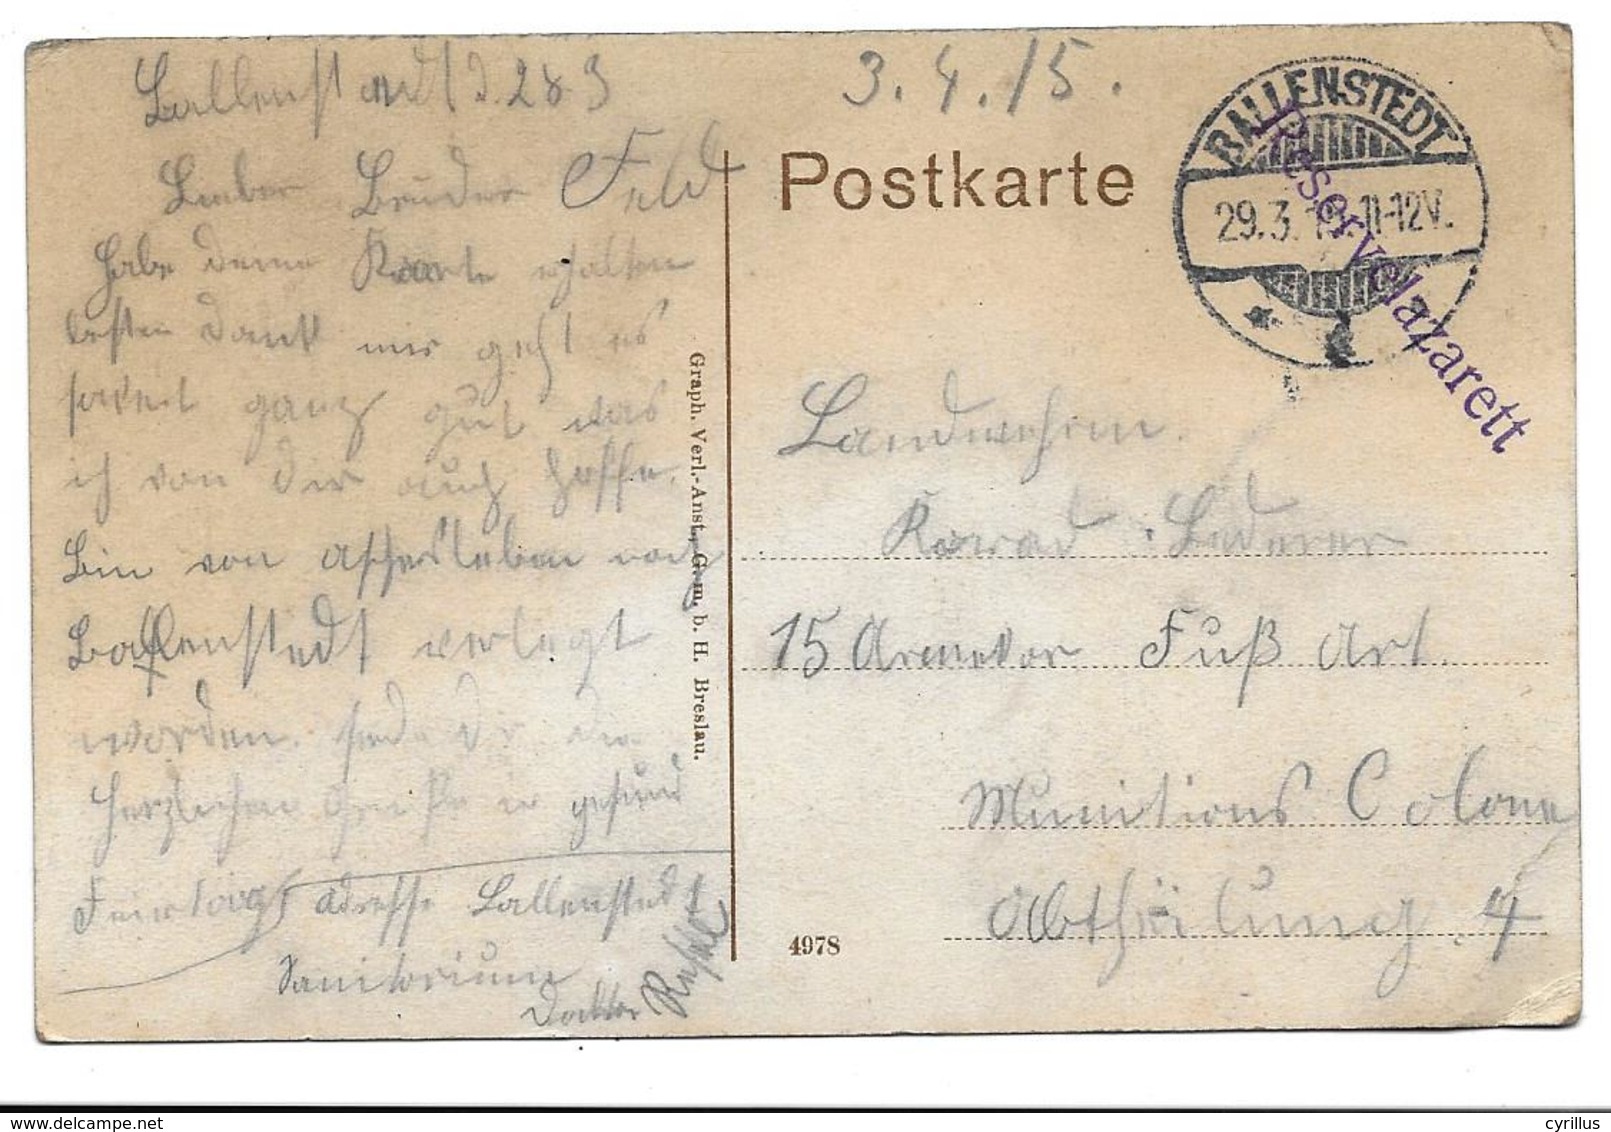 Ballenstedt d. 28 3
Lieber Bruder
Habe deine Kaarte erhalten
besten Dank mir geht es
soweit ganz gut was
ich von dir auch hoffe.
Bin von Aschersleben nach
Ballenstedt verlegt
worden. sende dir die
Herzlichen Grüße
Feiertags adresse Ballenstedt
Sanitorium
Doktor
Graph. Verl.-Anst., G. m. b. H. Breslau.
3.4.15.
Postkarte
BALLENSTEDT
29.3.15.11-12V.
Reservelazarett
Landwehrm.
Konrad Lederer
15 Armekor Fuß Art
Munitions Colone
Abthälung 4
4978
cyrillus